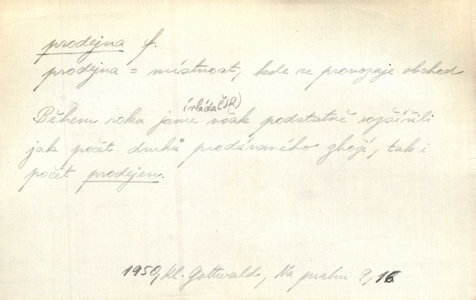 prodejna f.
prodejna = místnost, kde se provozuje obchod
(vláda ČSR)
Během roku jsme však podstatně rozšířili
jak počet druhů prodávaného zboží, tak i
počet prodejen.
1950, Kl. Gottwald, Na prahu 9, 16